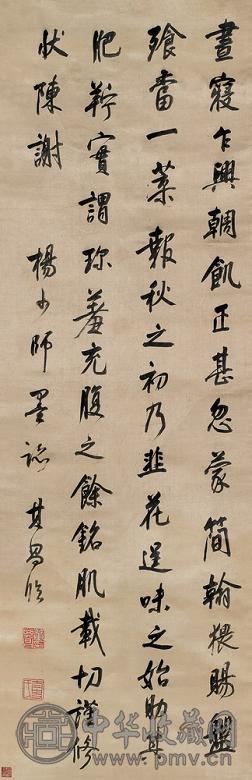 晝寢乍興輖飢正甚忽蒙簡翰猥賜盤
飧當一葉報秋之初乃韭花逞味之始助其
肥羜實謂珍羞充腹之餘銘肌載切謹修
狀陳謝 楊少師墨跡 其昌臨
中华收藏网
www.pmv.cn